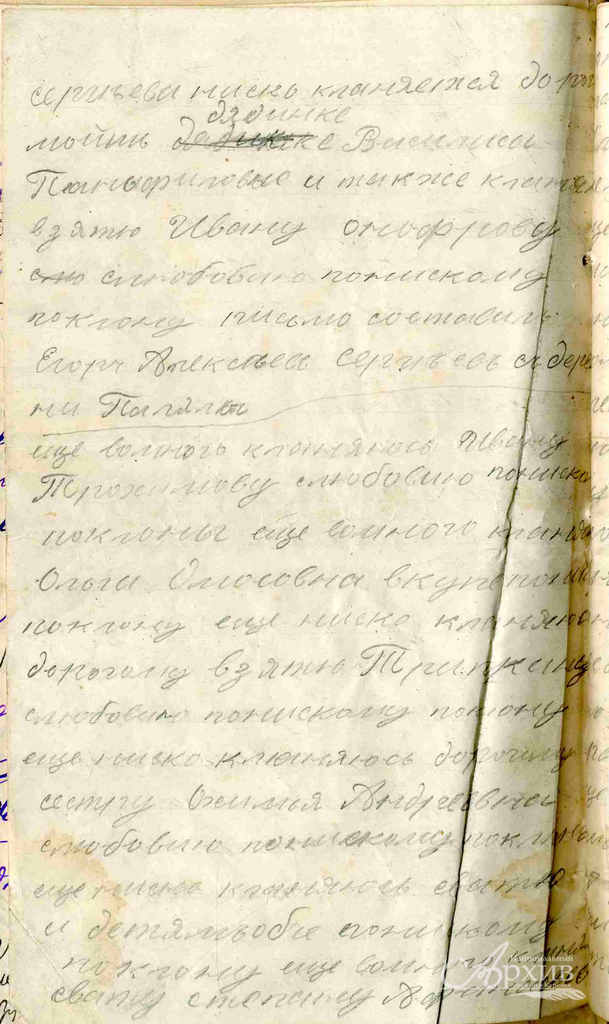 сергѣева ниско кланяется дорог
дядинке
моимъ Василисы
Панафиловне и также кланя
взятю Ивану онофрову
слюбовию понискому
поклону письмо составилъ
Егоръ Алексѣевъ Сергѣевъ съ дерев
ни
еще вомного кланяюсь Ивану
Трохимову слюбовию пониско
поклоны еще вомного кланя
Ольга вкупе пониж
поклону еще ниско кланяюсь
дорогому взятю
слюбовию понискому поклону
еще ниско кланяюсь дорогому
сестру Охимья Андреевна
слюбовию понискому покло
еще ниско кланяюсь сватю
и детямъ обе понискому
поклону еще вомного кланя
свату степану
Национальный
Архив